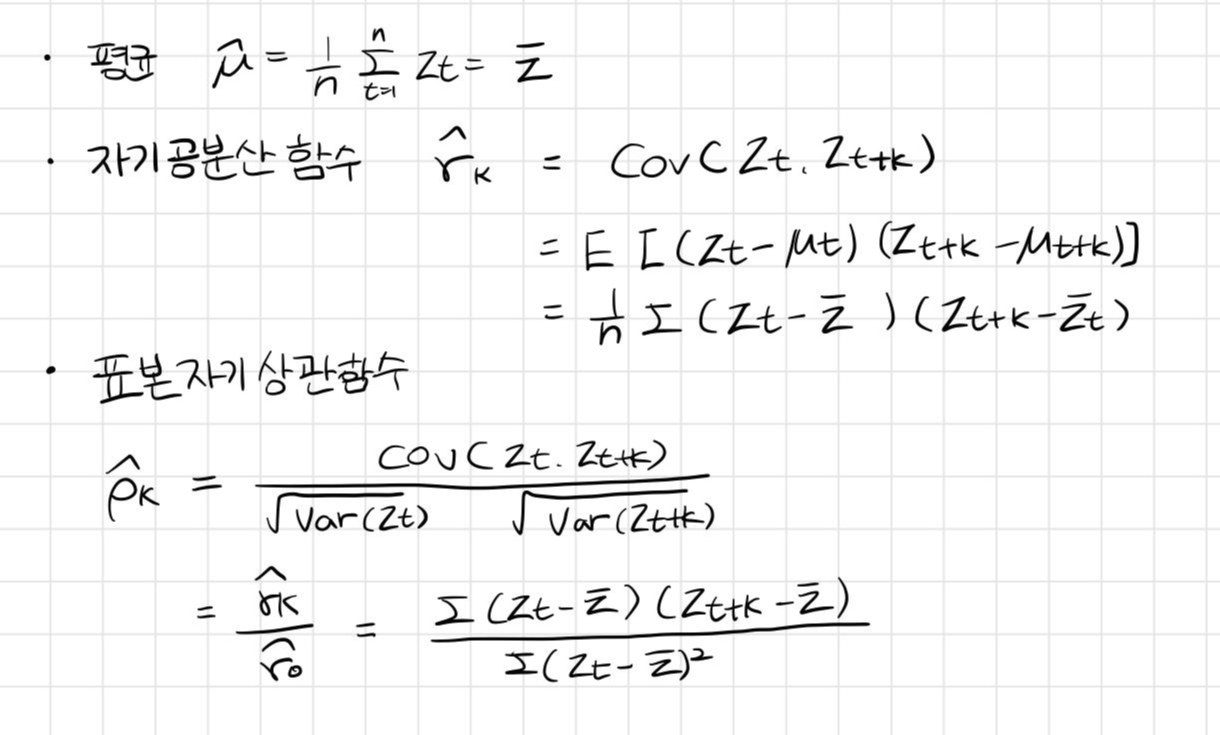 · 평균 μ̂ = 1/n Σ_{t=1}^{n} Zt = Z̄
· 자기공분산 함수 r̂k = Cov(Zt, Zt+k)
= E [(Zt - μt) (Zt+k - μt+k)]
= 1/n Σ (Zt - Z̄) (Zt+k - Z̄t)
· 표본자기상관함수
ρ̂k = Cov(Zt, Zt+k) / √Var(Zt) √Var(Zt+k)
= r̂k / r̂0 = Σ (Zt - Z̄) (Zt+k - Z̄) / Σ(Zt - Z̄)²